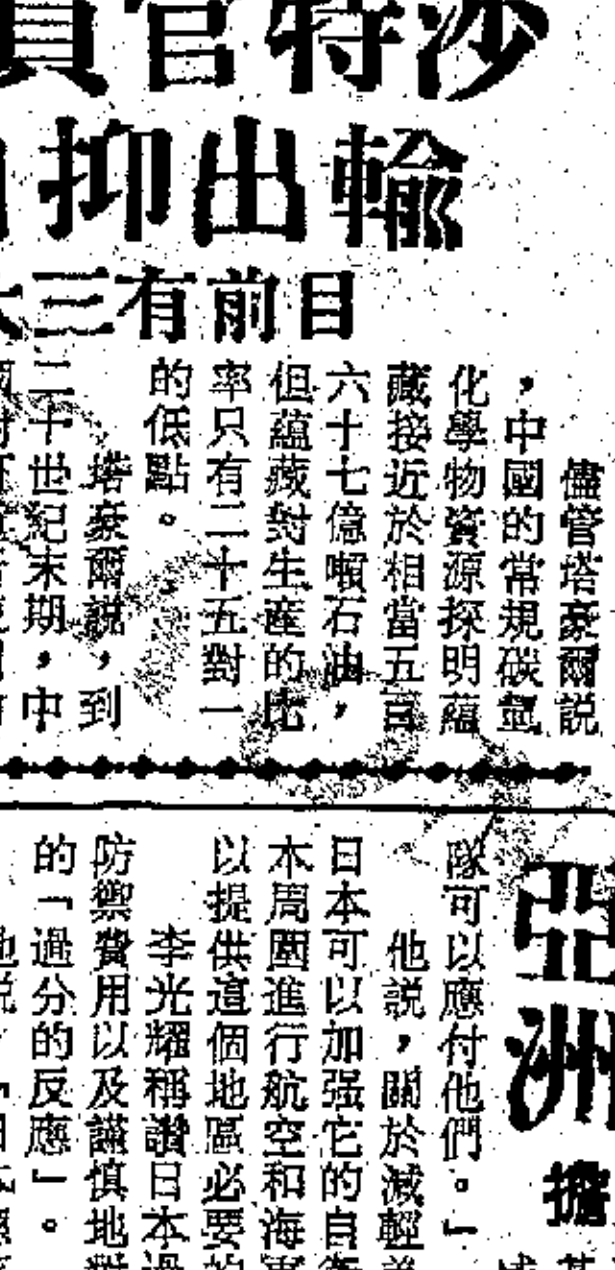 沙特官員
輸出抑
目前有三大
儘管塔豪爾説
，中國的常規碳氫
化學物資源探明蘊
藏接近於相當五百
六十七億噸石油，
但蘊藏對生産的比
率只有二十五對一
的低點。
塔豪爾説，到
二十世紀末期，中
亞洲
擔
隊可以應付他們。」
他説，關於減輕
日本可以加强它的自衛
本周圍進行航空和海軍
以提供這個地區必要的
李光耀稱讚日本過
防禦費用以及謹慎地對
的「過分的反應」。